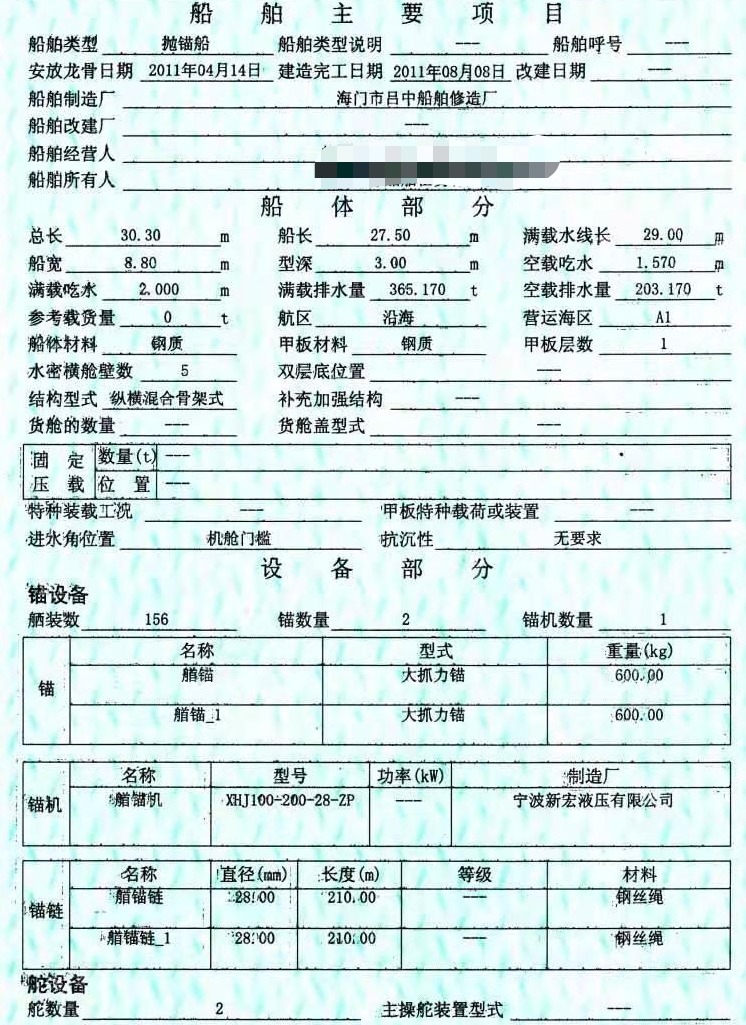 船舶主要项目
船舶类型 抛锚船 船舶类型说明 --- 船舶呼号 ---
安放龙骨日期 2011年04月14日 建造完工日期 2011年08月08日 改建日期 ---
船舶制造厂 海门市吕中船舶修造厂
船舶改建厂 ---
船舶经营人
船舶所有人
船体部分
总长 30.30 m 船长 27.50 m 满载水线长 29.00 m
船宽 8.80 m 型深 3.00 m 空载吃水 1.570 m
满载吃水 2.000 m 满载排水量 365.170 t 空载排水量 203.170 t
参考载货量 0 t 航区 沿海 营运海区 A1
船体材料 钢质 甲板材料 钢质 甲板层数 1
水密横舱壁数 5 双层底位置 ---
结构型式 纵横混合骨架式 补充加强结构 ---
货舱的数量 --- 货舱盖型式 ---
固定 数量(t) ---
压载 位置 ---
特种装载工况 --- 甲板特种载荷或装置 ---
进水角位置 机舱门槛 抗沉性 无要求
设备部分
锚设备
舾装数 156 锚数量 2 锚机数量 1
名称 型式 重量(kg)
锚 艏锚 大抓力锚 600.00
艏锚_1 大抓力锚 600.00
名称 型号 功率(kW) 制造厂
锚机 艏锚机 XHJ100-200-28-ZP --- 宁波新宏液压有限公司
名称 直径(mm) 长度(m) 等级 材料
锚链 艏锚链 28.00 210.00 --- 钢丝绳
艏锚链_1 28.00 210.00 --- 钢丝绳
舵设备
舵数量 2 主操舵装置型式 ---